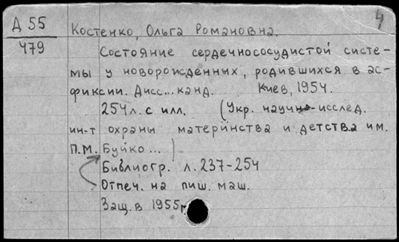 Д 55
479
4
Костенко, Ольга Романовна.
Состояние сердечнососудистой систе-
мы у новорожденных, родившихся в ас-
фиксии. Дисс... канд. Киев, 1954.
254 л. с илл. (Укр. научно-исслед.
ин-т охраны материнства и детства им.
П.М. Буйко...)
Библиогр. л. 237-254
Отпеч. на пиш. маш.
Защ. в 1955г.